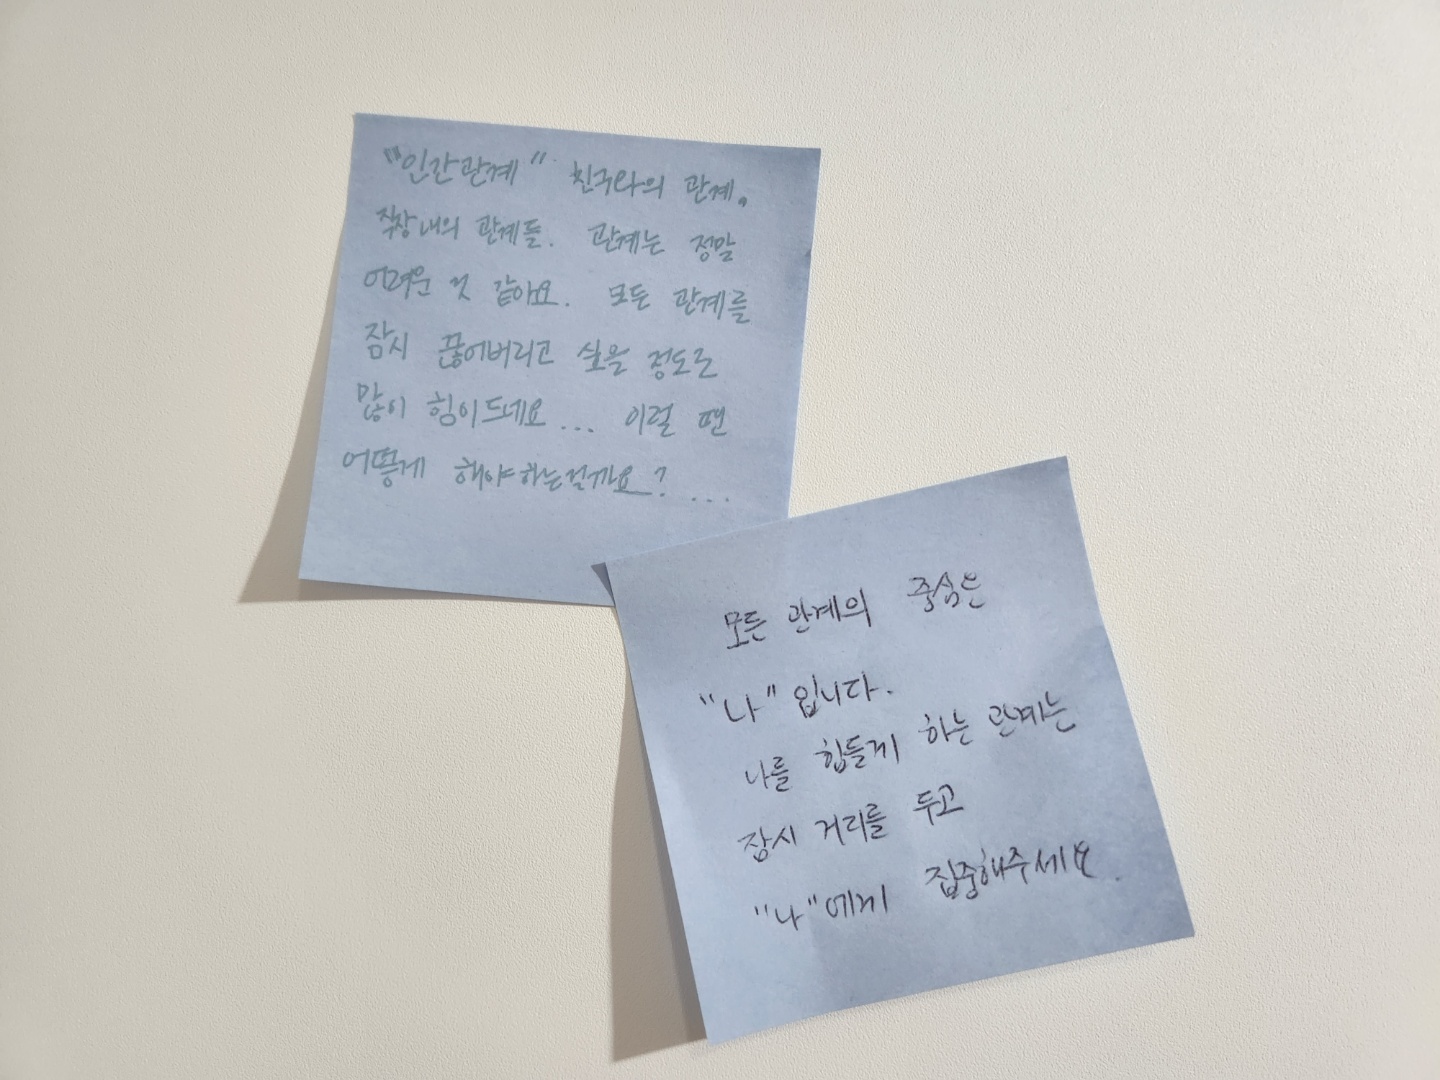 "인간관계" 친구와의 관계,
직장 내의 관계들. 관계는 정말
어려운 것 같아요. 모든 관계를
잠시 끊어버리고 싶을 정도로
많이 힘이드네요... 이럴 땐
어떻게 해야하는걸까요? ...
모든 관계의 중심은
"나" 입니다.
나를 힘들게 하는 관계는
잠시 거리를 두고
"나"에게 집중해주세요.